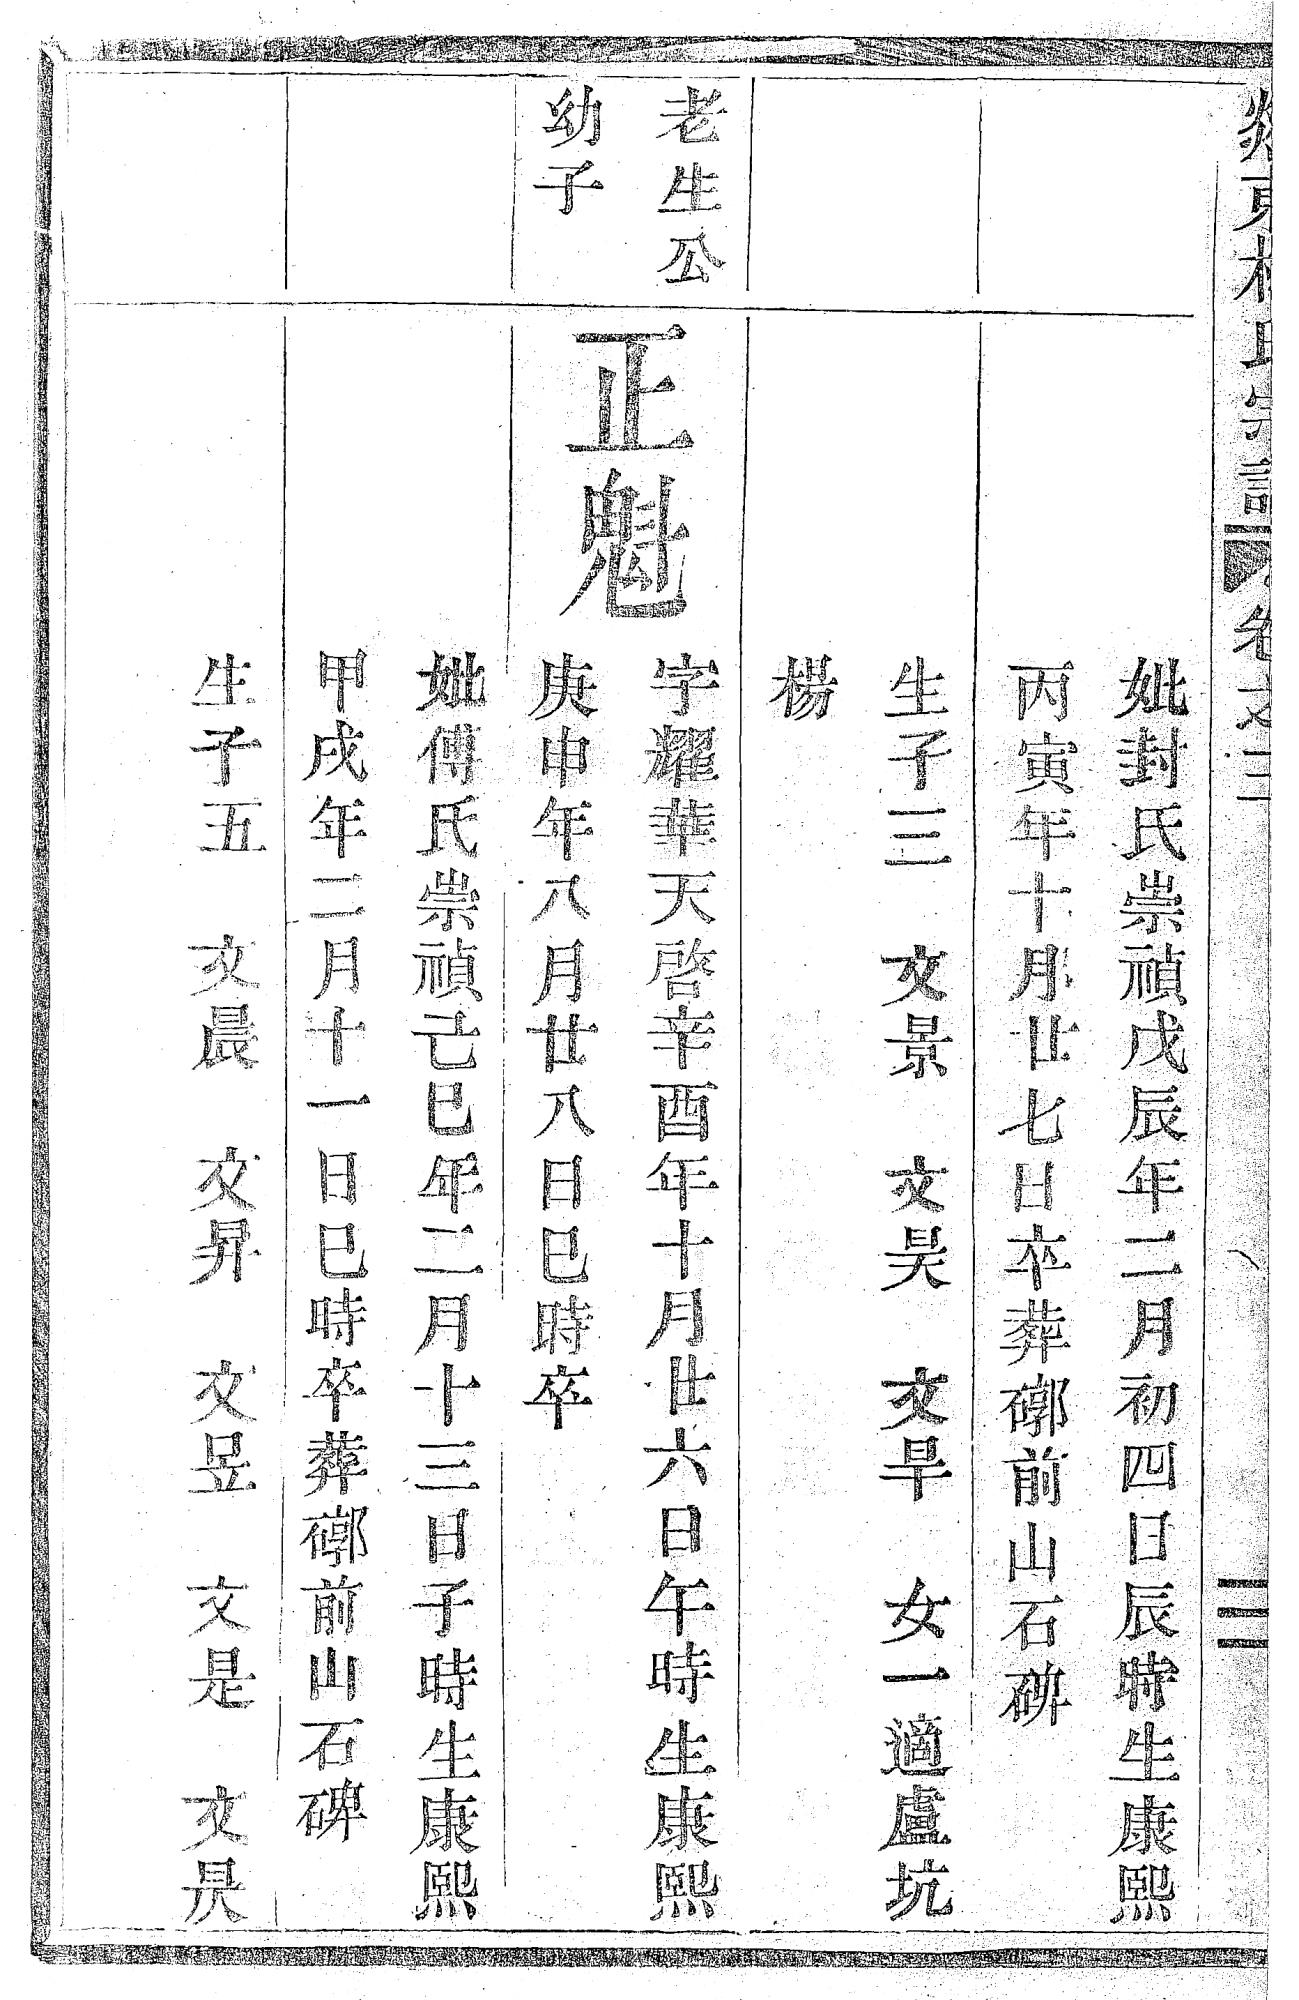 妣封氏崇禎戊辰年二月初四日辰時生康熙
丙寅年十月廿七日卒葬𥕏前山石碑
生子三　文景　文昊　文旱　女一適盧坑
楊
老生公
幼子
正魁
字耀華天啓辛酉年十月廿六日午時生康熙
庚申年八月廿八日巳時卒
妣傅氏崇禎己巳年二月十三日子時生康熙
甲戌年二月十一日巳時卒葬𥕏前山石碑
生子五　文晨　文昇　文昱　文是　文昃